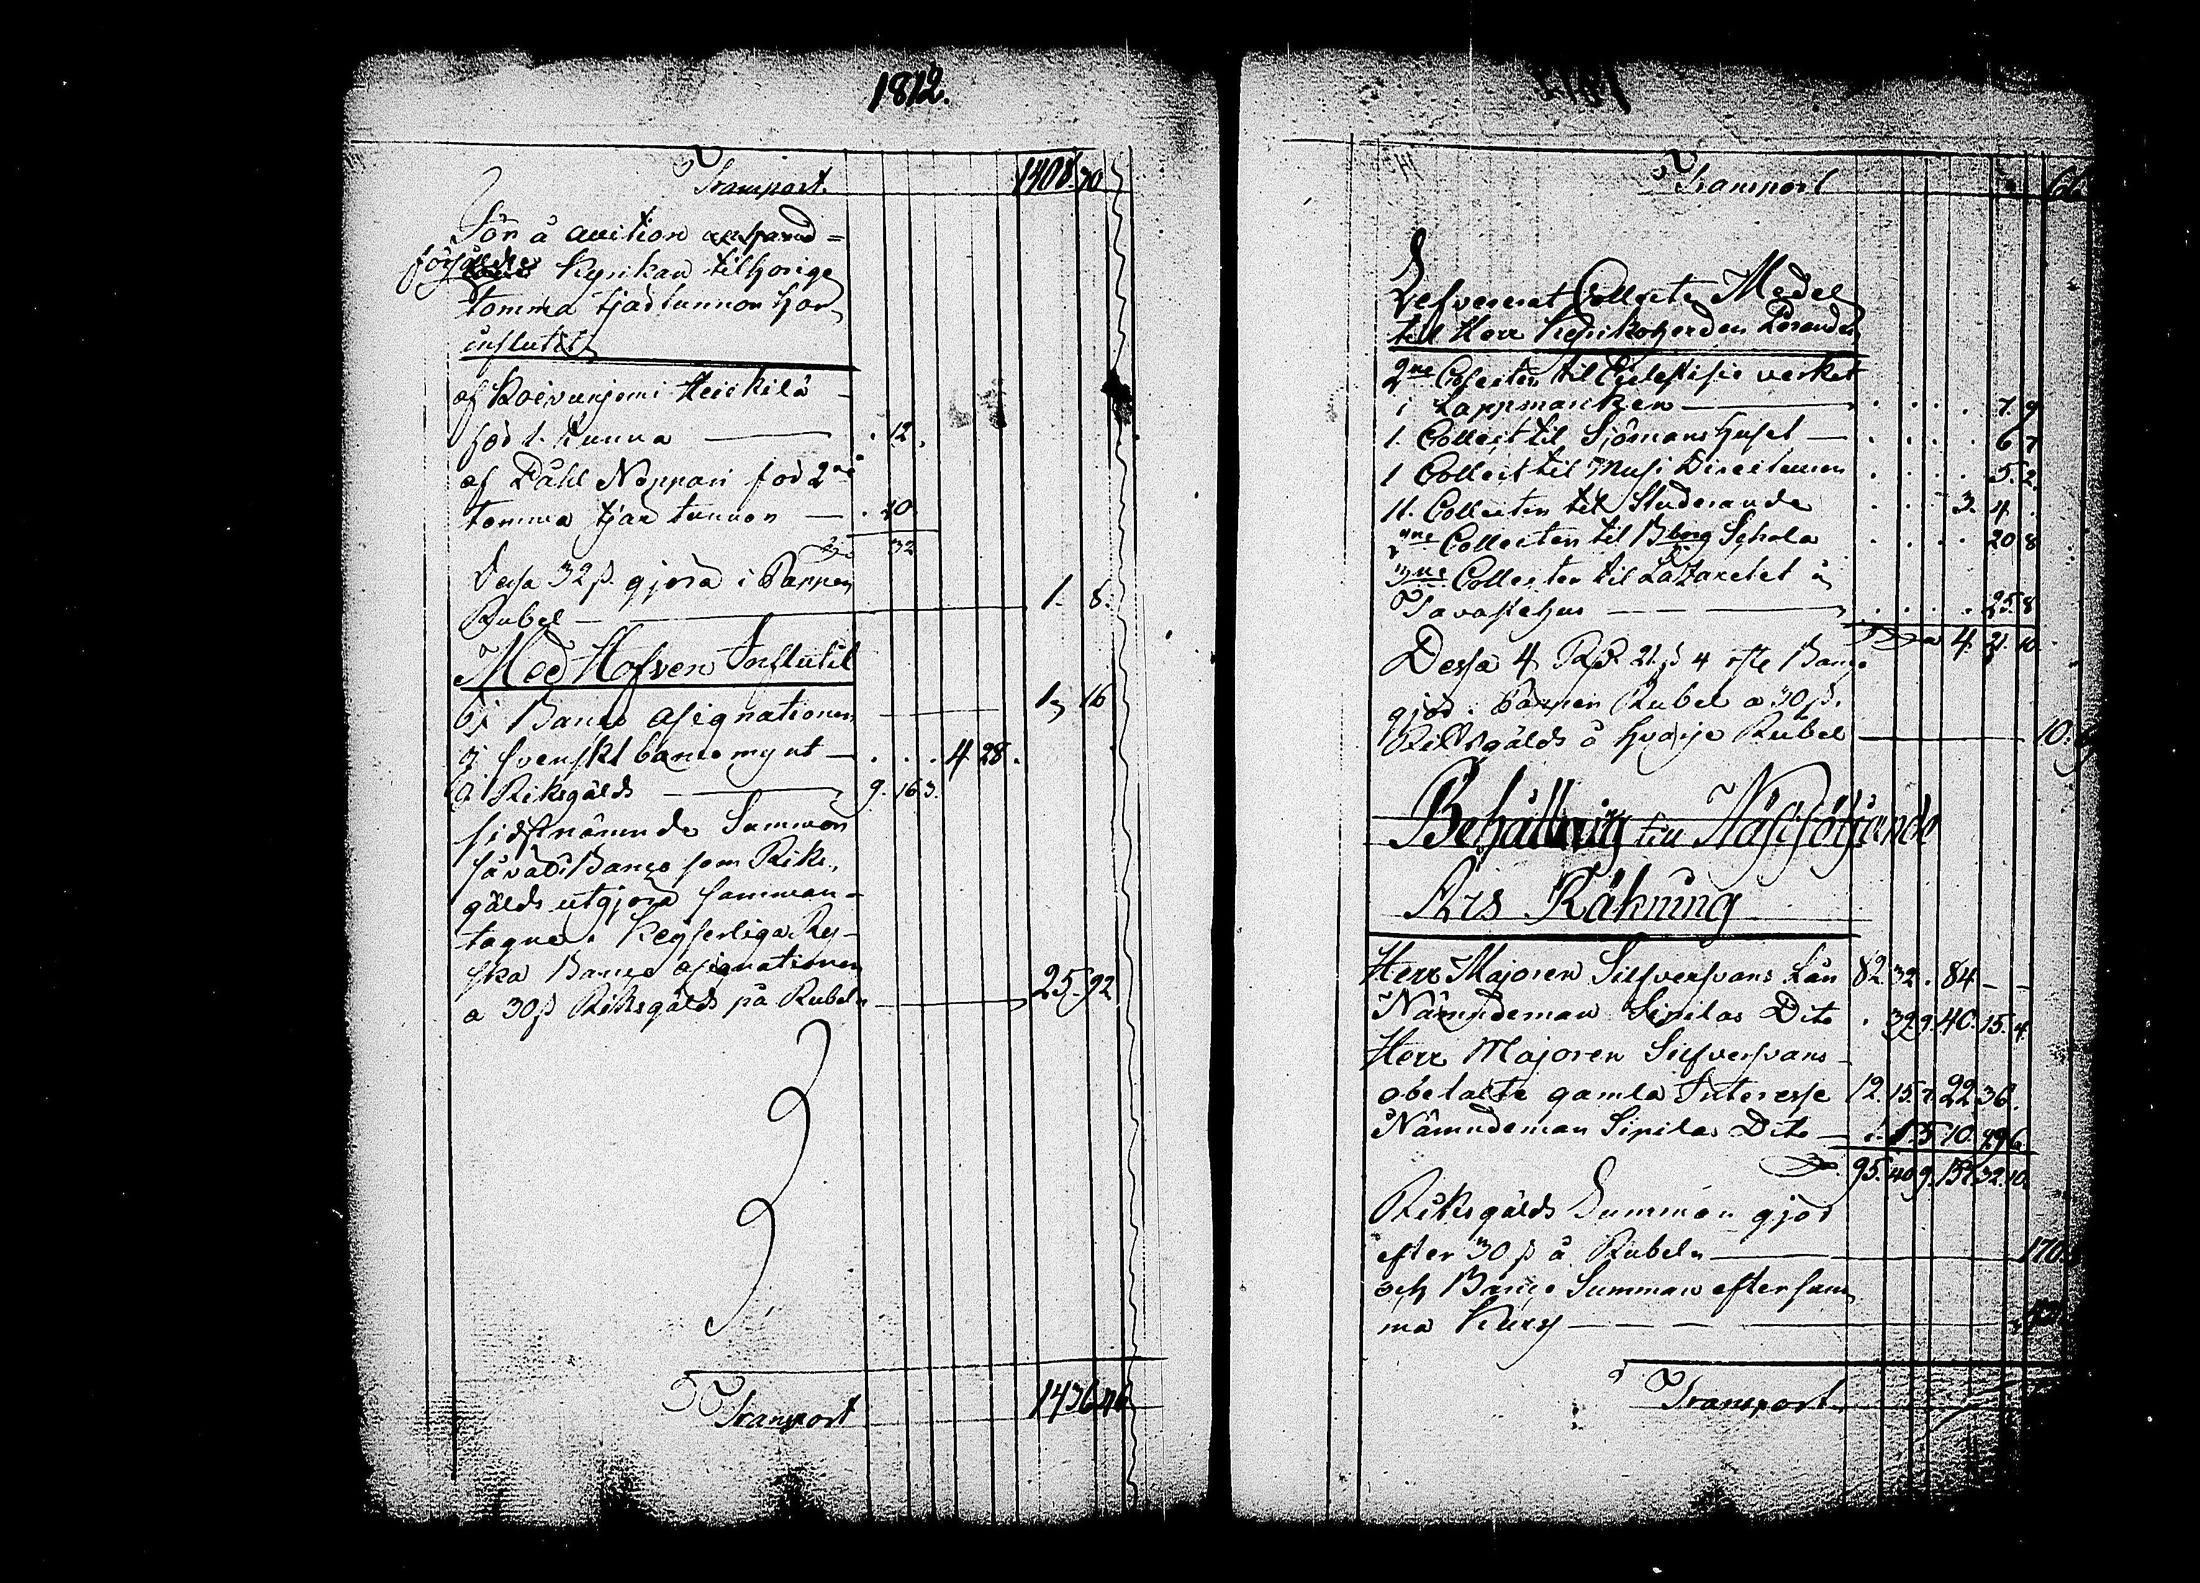 1812.
Transport 1408. 70
För å auction
försålde Kyrkan tilhörige
tomma tjärtunnor har
influtit
af Koivunjemi Heickilä
för 1. tunna . 12.
af Påhl Noppari för 2ne
tomma tjär tunnor . 20
Sa 32
Dessa 32 ß. gjöra i Papper
Rubel 1. 6.
Med Hofven Influtit
i Banco asignationer 1. 16
i svenskt banco mynt . . . 4 28.
i Riksgälds 9. 16. 3.
sidstnämnde Summor
såväl Banco som Riks-
gälds utgjöra samman-
tagne i Keyserliga Ry-
ska Banco asignationer
a 30 ß Riksgälds på Rubeln 25. 92
Transport 1436 46
Transport
Lefvererat Collecte Medel
till Herr Kyrkoherden
2ne Collecten til Ecclesistic verket
i Lappmarken . . . . 7. 9
1. Collect til Sjömanshuset . . . . 6 7
1 Collect til Musi Directeuren . . . . 5. 2.
11. Collecten til Studerande . . . 3. 4 .
2ne Collecten til Bborg Schola . . . . 20 8
3ne Collecter til Lazaretet i
Tavastehus . . . . 25. 8
Sa 4. 21. 10.
Dessa 4 Rd. 21. ß 4 rst Banco
gjör i Papper Rubel a 30 ß.
Riksgälds å hvarje Rubel 10.
Behållning till Näst följande
Års Räkning
Herr Majoren Silfversvans Lån 82. 32 . 84 – –
Nämndeman Sipilas Dito . 39. 9. 40. 15. 4.
Herr Majoren Silfversvans
obetalte gamla Interesse 12. 15. 7. 22 36.
Nämndeman Sipilas Dito 1. 5 10. 29 6.
Sa 95. 40 9. 157. 32. 10.
Riksgälds Summan gjör
efter 30 ß å Rubeln 170.
och Banco Summan efter sam
ma Kurs
Transport